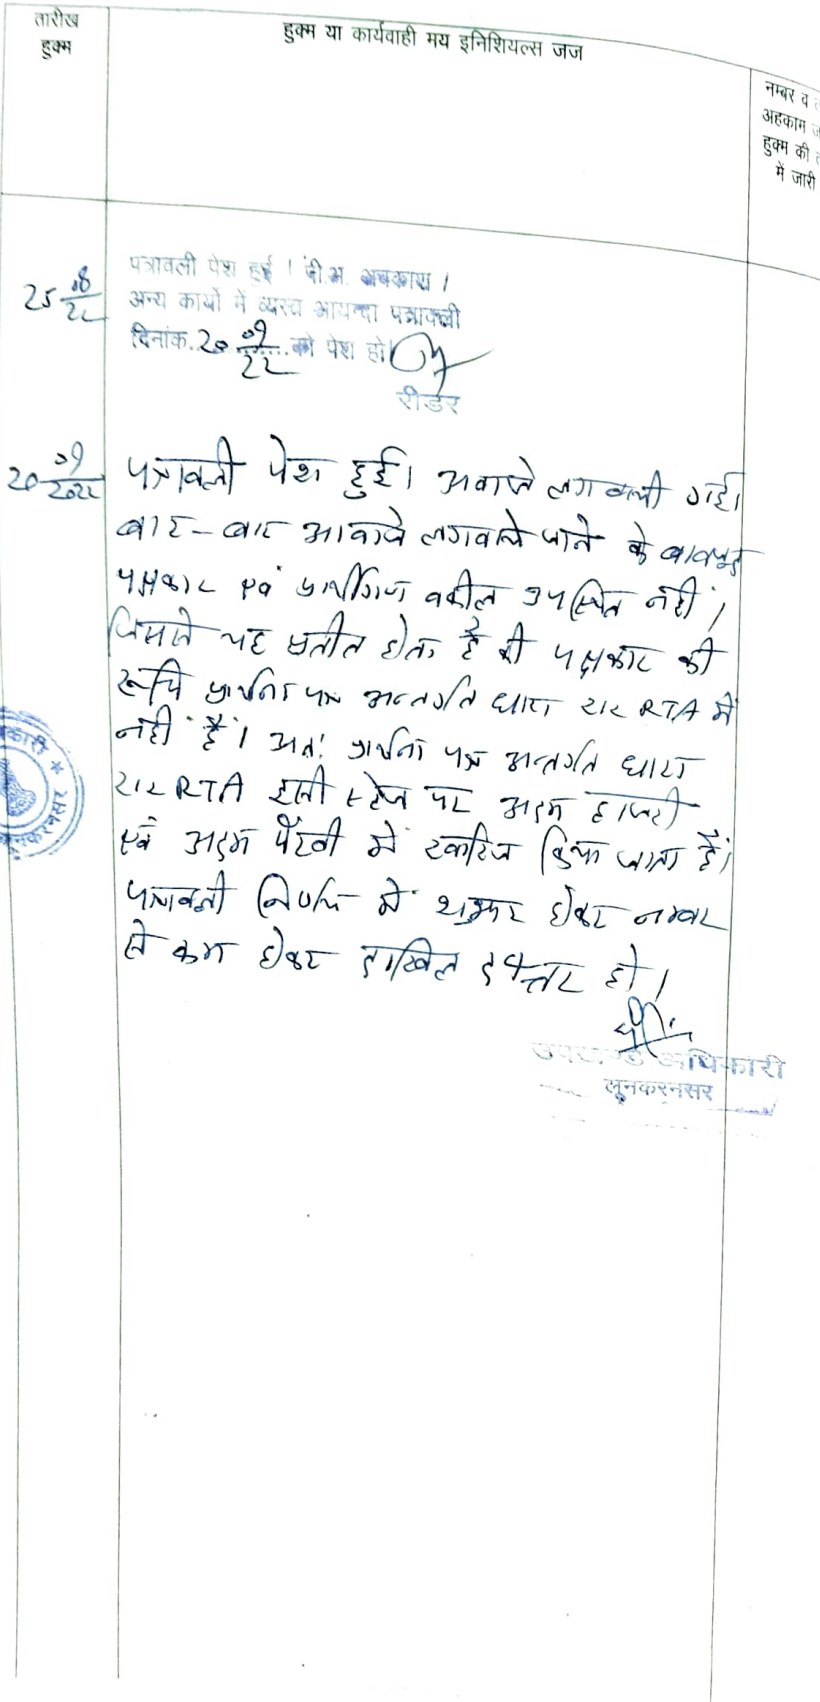 तारीख
हुक्म
हुक्म या कार्यवाही मय इनिशियल्स जज
नम्बर व
अहकाम
हुक्म की
में जारी
25 08/22
पत्रावली पेश हुई । पी.अ.
अन्य कार्यो में व्यस्त आयन्दा पत्रावली
दिनांक. 20 09/22 को पेश हो
रीडर
20 09/2022
पत्रावली पेश हुई। अवाजे लगवायी गई।
बार-बार आवाजे लगवाये जाने के बावजूद
पक्षकार एवं प्रार्थीगण वकील उपस्थित नहीं।
जिससे यह प्रतीत होता है की पक्षकार की
रूचि प्रार्थना पत्र अन्तर्गत धारा 212 RTA में
नहीं है। अतः प्रार्थना पत्र अन्तर्गत धारा
212 RTA इसी स्टेज पर अदम हाजरी
एवं अदम पैरवी में खारिज किया जाता है।
पत्रावली निर्णय में शुमार होकर नम्बर
से कम होकर दाखिल दफ्तर हो।
उपखण्ड अधिकारी
लूनकरनसर
कारी *
लूनकरनसर